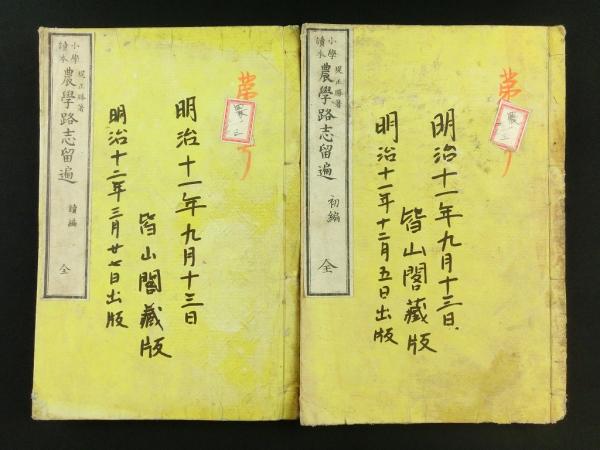 第
明治十一年九月十三日
皆山閣藏版
明治十一年十二月五日出版
小學
讀本
堤正勝著
農學路志留遍
初編
全
第
明治十一年九月十三日
皆山閣藏版
明治十二年三月廿七日出版
小學
讀本
堤正勝著
農學路志留遍
續編
全